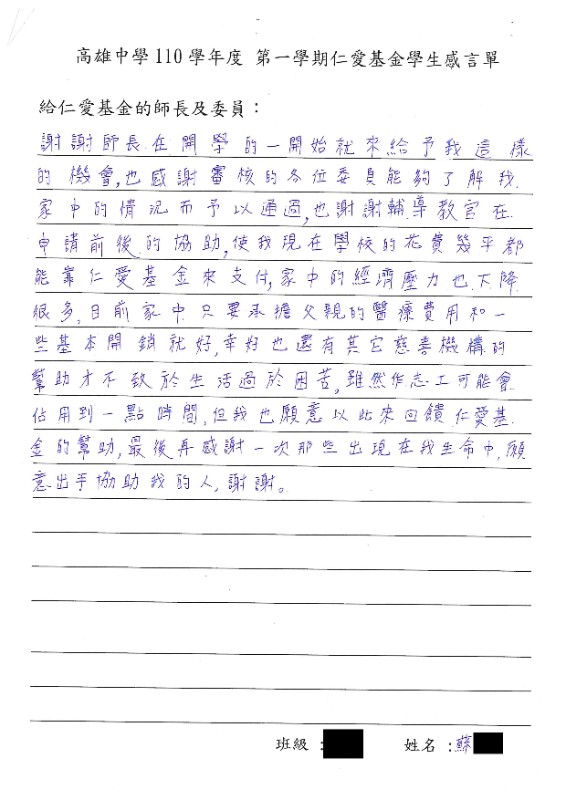 高雄中學110學年度 第一學期仁愛基金學生感言單
給仁愛基金的師長及委員：
謝謝師長在開學的一開始就來給予我這樣
的機會,也感謝審核的各位委員能夠了解我
家中的情況而予以通過,也謝謝輔導教官在
申請前後的協助,使我現在學校的花費幾乎都
能靠仁愛基金來支付,家中的經濟壓力也下降
很多,目前家中只要承擔父親的醫療費用和一
些基本開銷就好,幸好也還有其它慈善機構的
幫助才不致於生活過於困苦,雖然作志工可能會
佔用到一點時間,但我也願意以此來回饋仁愛基
金的幫助,最後再感謝一次那些出現在我生命中,願
意出手協助我的人,謝謝。
班級： 姓名：蘇